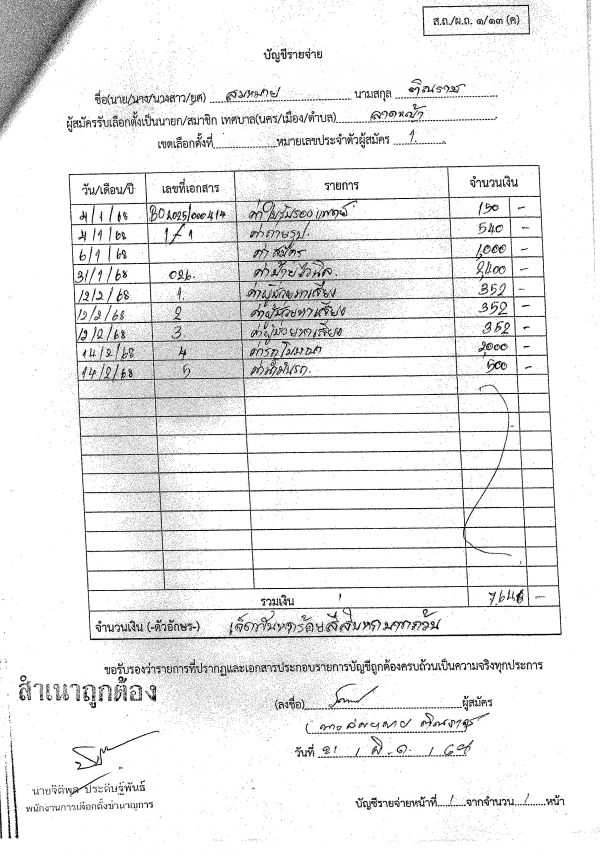 ส.ถ./ผ.ถ. ๑/๑๓ (ค)
บัญชีรายจ่าย
ชื่อ(นาย/นาง/นางสาว/ยศ) สมหมาย นามสกุล ติณราช
ผู้สมัครรับเลือกตั้งเป็นนายก/สมาชิก เทศบาล(นคร/เมือง/ตำบล) ลาดหญ้า
เขตเลือกตั้งที่ หมายเลขประจำตัวผู้สมัคร 1
วัน/เดือน/ปี เลขที่เอกสาร รายการ จำนวนเงิน
4/1/68 ค่าใบรับรองแพทย์ 150 -
4/1/68 1/1 ค่าถ่ายรูป 540 -
6/1/68 ค่าสมัคร 1,000 -
31/1/68 026. ค่าป้ายไวนิล 2,400 -
12/2/68 1. ค่าผู้ช่วยหาเสียง 352 -
12/2/68 2 ค่าผู้ช่วยหาเสียง 352 -
12/2/68 3. ค่าผู้ช่วยหาเสียง 352 -
14/2/68 4 ค่ารถโฆษณา 2,000 -
14/2/68 5 ค่าน้ำมันรถ. 500 -
รวมเงิน 7,646 -
จำนวนเงิน (-ตัวอักษร-) เจ็ดพันหกร้อยสี่สิบหกบาทถ้วน
ขอรับรองว่ารายการที่ปรากฏและเอกสารประกอบรายการบัญชีถูกต้องครบถ้วนเป็นความจริงทุกประการ
สำเนาถูกต้อง
(ลงชื่อ) ผู้สมัคร
(นายสมหมาย ติณราช)
วันที่ 21 / มี.ค. / 68
นายจิติพล ประดิษฐ์พันธ์
พนักงานการเลือกตั้งชำนาญการ
บัญชีรายจ่ายหน้าที่ 1 จากจำนวน 1 หน้า